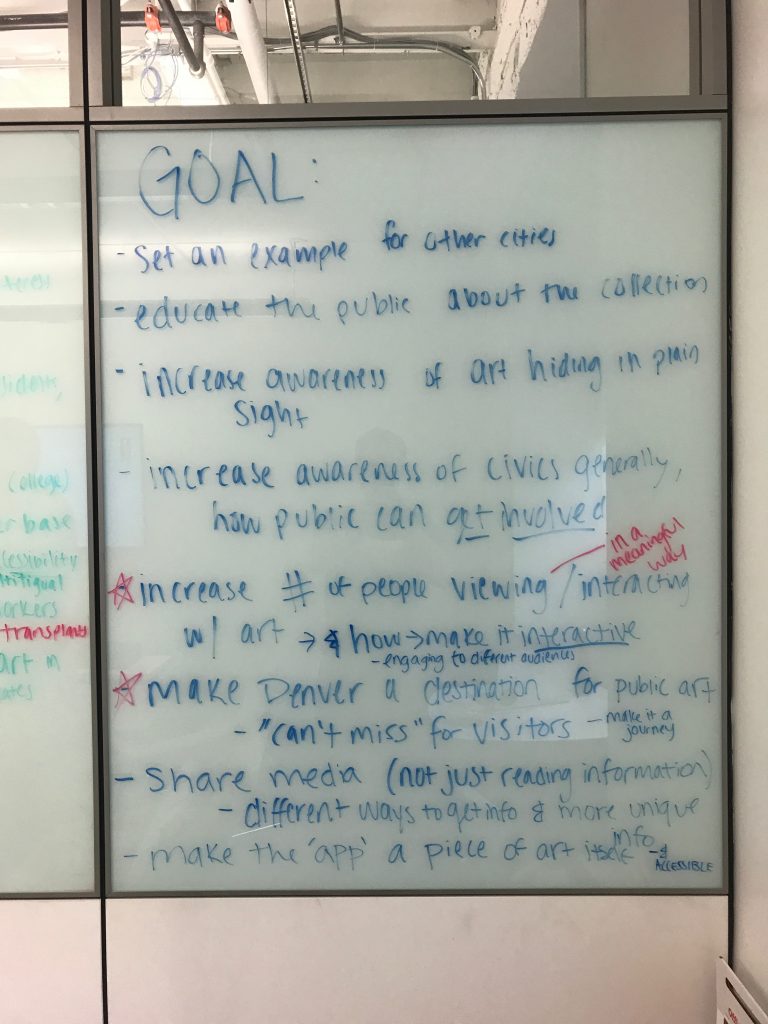 GOAL:
- set an example for other cities
- educate the public about the collection
- increase awareness of art hiding in plain
sight
- increase awareness of civics generally,
how public can get involved
in a
meaningful
way
increase # of people viewing / interacting
w/ art → & how → make it interactive
- engaging to different audiences
- make Denver a destination for public art
- "can't miss" for visitors - make it a
journey
- Share media (not just reading information)
- different ways to get info & more unique
info
- make the 'app' a piece of art itself - &
ACCESSIBLE
college)
base
transplants
art in